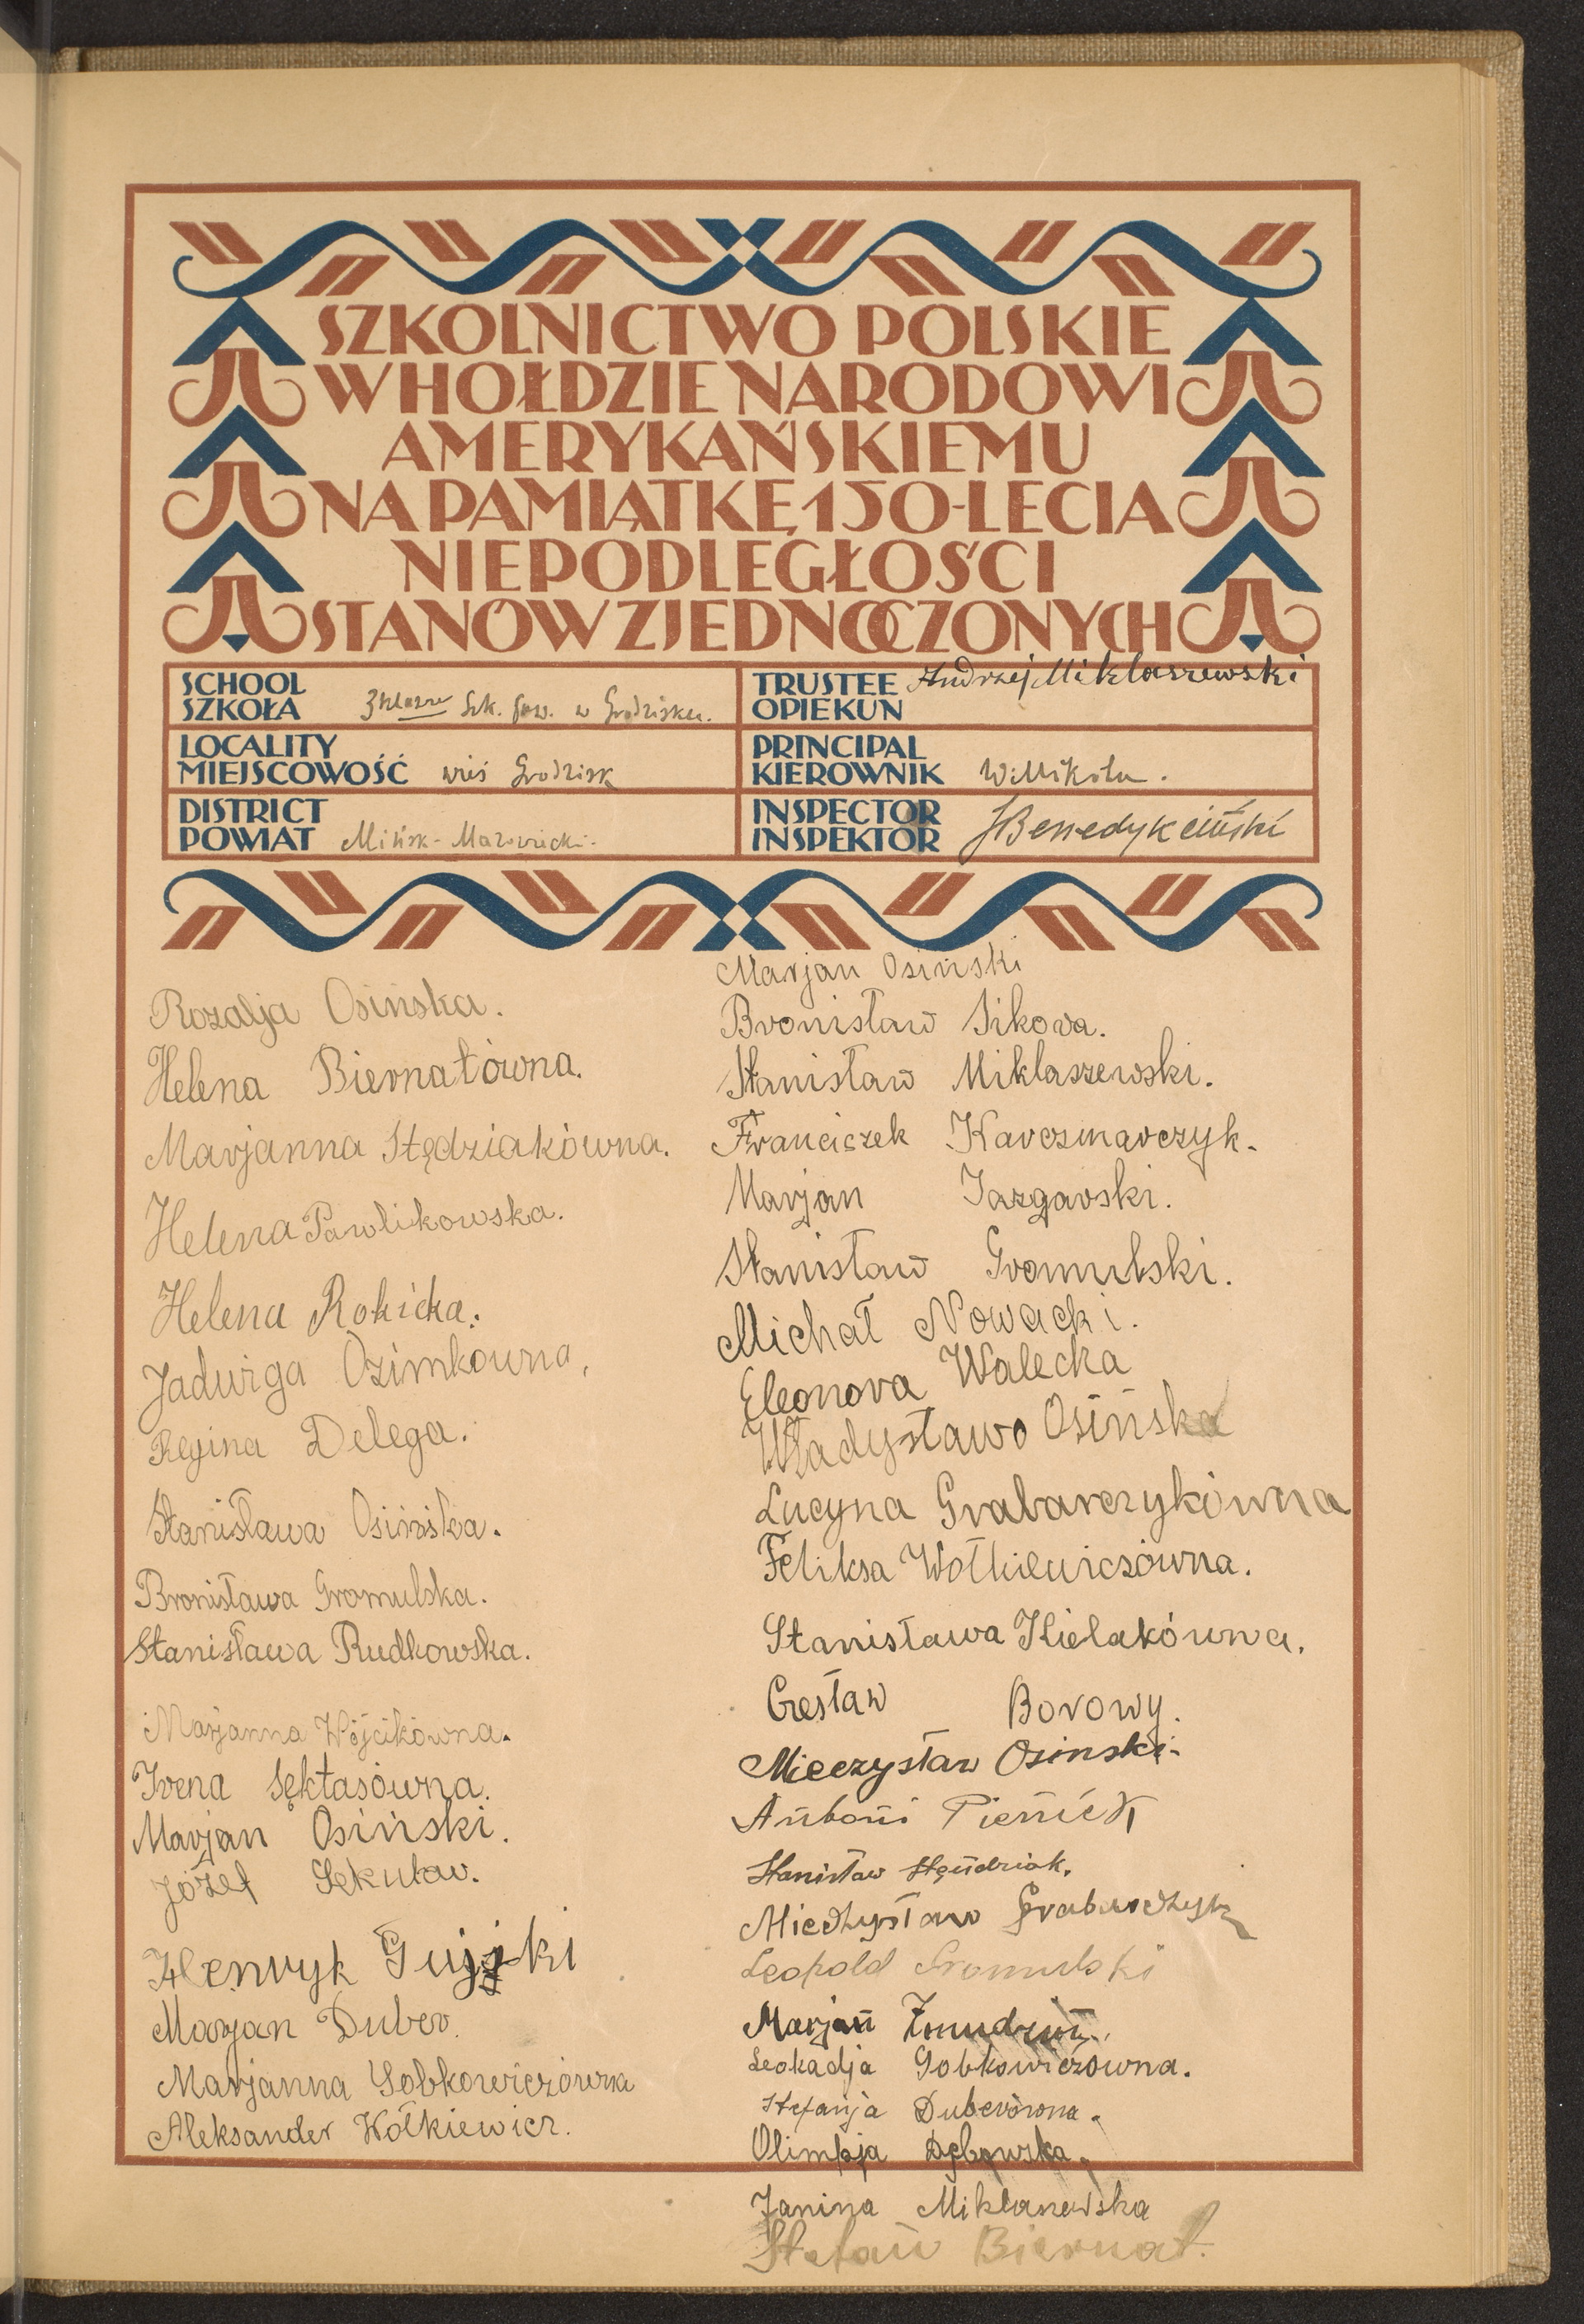 SZKOLNICTWO POLSKIE
W HOŁDZIE NARODOWI
AMERYKAŃSKIEMU
NA PAMIĄTKĘ 150-LECIA
NIEPODLEGŁOŚCI
STANÓW ZJEDNOCZONYCH
SCHOOL
SZKOŁA 3 klasowa Szk. pow. w Grodzisku.
TRUSTEE Andrzej Miklaszewski
OPIEKUN
LOCALITY
MIEJSCOWOŚĆ wieś Grodzisk
PRINCIPAL
KIEROWNIK W. Mikuła.
DISTRICT
POWIAT Mińsk-Mazowiecki.
INSPECTOR
INSPEKTOR JBenedykciński
Rozalja Osińska.
Helena Biernatówna.
Marjanna Stędziakówna.
Helena Pawlikowska.
Helena Rokicka.
Jadwiga Ozimkowna,
Regina Delega.
Stanisława Osińska.
Bronisława Gromulska.
Stanisława Rudkowska.
Marjanna Wójcikówna.
Irena Sęktasówna.
Marjan Osiński.
Józef Sękular.
Henryk Gujski
Marjan Duber.
Marjanna Sobkowiczówna
Aleksander Wołkiewicz.
Marjan Osiński
Bronisław Sikora.
Stanisław Miklaszewski.
Franciszek Karczmarczyk.
Marjan Jazgarski.
Stanisław Gromulski.
Michał Nowacki.
Eleonora Walecka
Władysława Osińska
Lucyna Grabarczykówna
Feliksa Wołkiewiczówna.
Stanisława Kielakówna.
Czesław Borowy.
Mieczysław Osinski.
Antoni Pieniek
Stanisław Stędziak.
Mieczysław Grabarczyk
Leopold Gromulski
Marjan Żmudzin.
Leokadja Sobkowiczówna.
Stefanja Duberówna.
Olimpja Dębowska.
Janina Miklaszewska
Stefan Biernat.